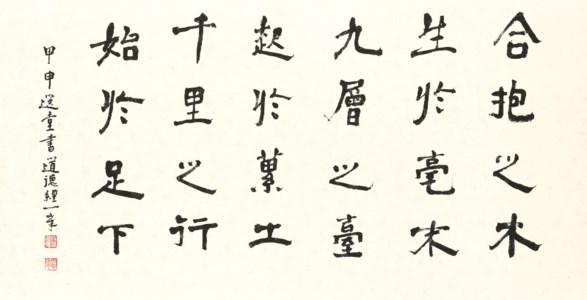 合抱之木
生於毫末
九層之臺
起於蔂土
千里之行
始於足下
甲申選堂書道德經一章